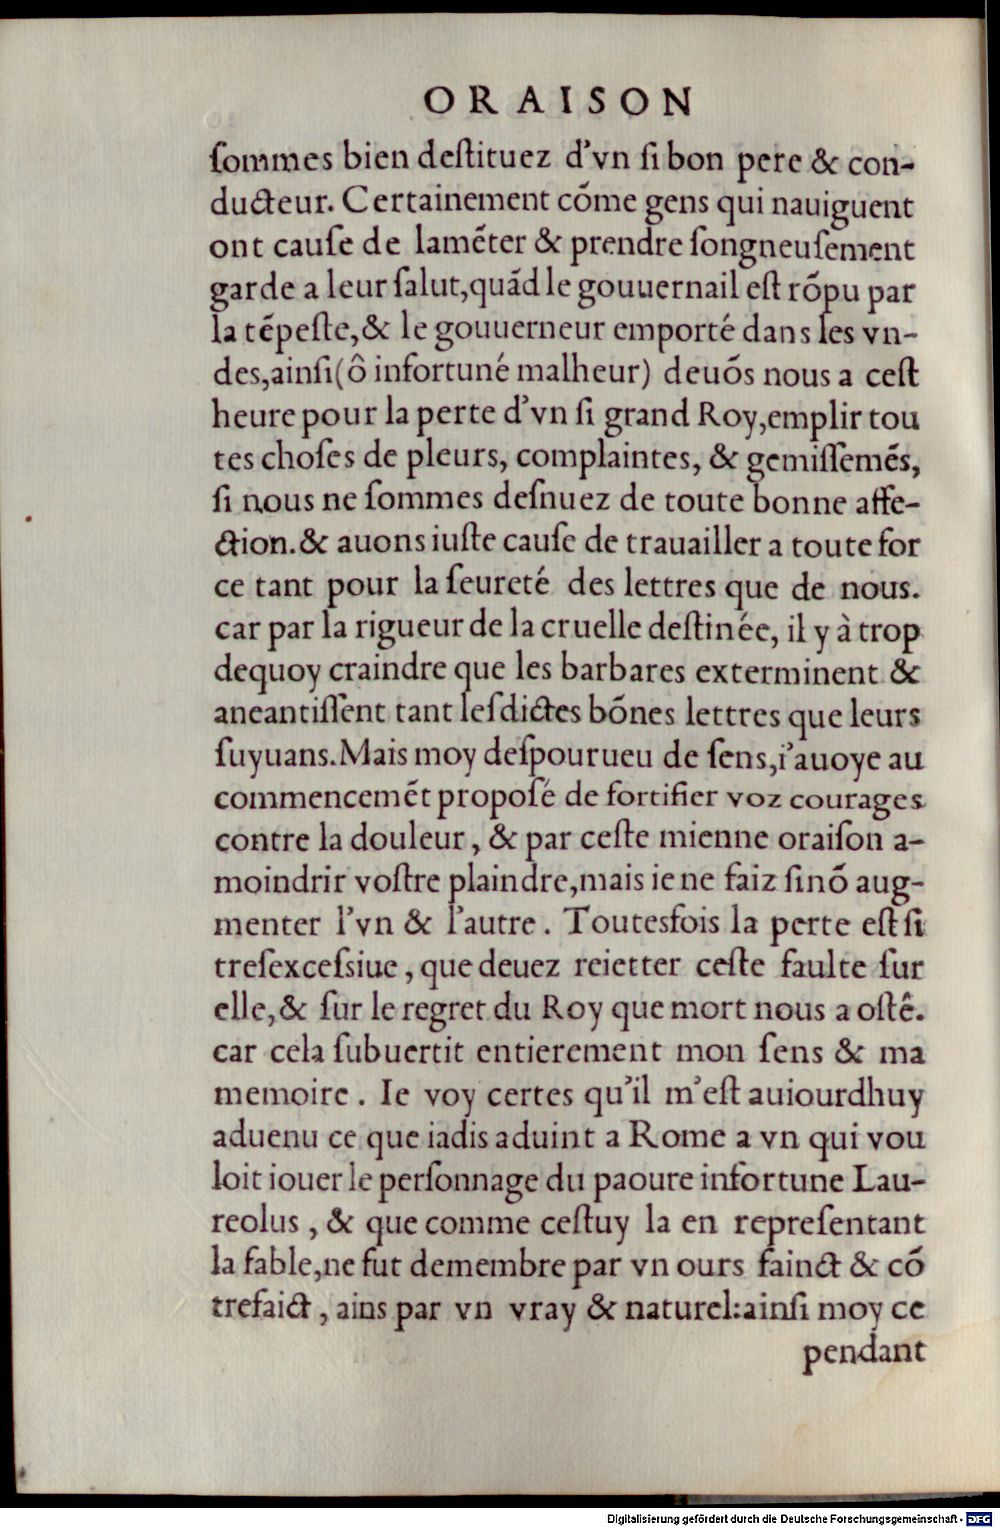 ORAISON
ſommes bien deſtituez d'vn ſi bon pere & con-
ducteur. Certainement cõme gens qui nauiguent
ont cauſe de lamẽter & prendre ſongneuſement
garde a leur ſalut,quãd le gouuernail eſt rõpu par
la tẽpeſte,& le gouuerneur emporté dans les vn-
des,ainſi(ô infortuné malheur) deuõs nous a ceſt
heure pour la perte d'vn ſi grand Roy,emplir tou
tes choſes de pleurs, complaintes, & gemiſſemẽs,
ſi nous ne ſommes deſnuez de toute bonne affe-
ction.& auons iuſte cauſe de trauailler a toute for
ce tant pour la ſeureté des lettres que de nous.
car par la rigueur de la cruelle deſtinée, il y à trop
dequoy craindre que les barbares exterminent &
aneantiſſent tant leſdictes bõnes lettres que leurs
ſuyuans.Mais moy deſpourueu de ſens,i'auoye au
commencemẽt propoſé de fortifier voz courages
contre la douleur, & par ceſte mienne oraiſon a-
moindrir voſtre plaindre,mais ie ne faiz ſinõ aug-
menter l'vn & l'autre. Toutesfois la perte eſt ſi
treſexceſsiue, que deuez reietter ceſte faulte ſur
elle,& ſur le regret du Roy que mort nous a oſtê.
car cela ſubuertit entierement mon ſens & ma
memoire. Ie voy certes qu'il m'eſt auiourdhuy
aduenu ce que iadis aduint a Rome a vn qui vou
loit iouer le perſonnage du paoure infortune Lau-
reolus, & que comme ceſtuy la en repreſentant
la fable,ne fut demembre par vn ours fainct & cõ
trefaict, ains par vn vray & naturel:ainſi moy ce
pendant
Digitalisierung gefördert durch die Deutsche Forschungsgemeinschaft - DFG